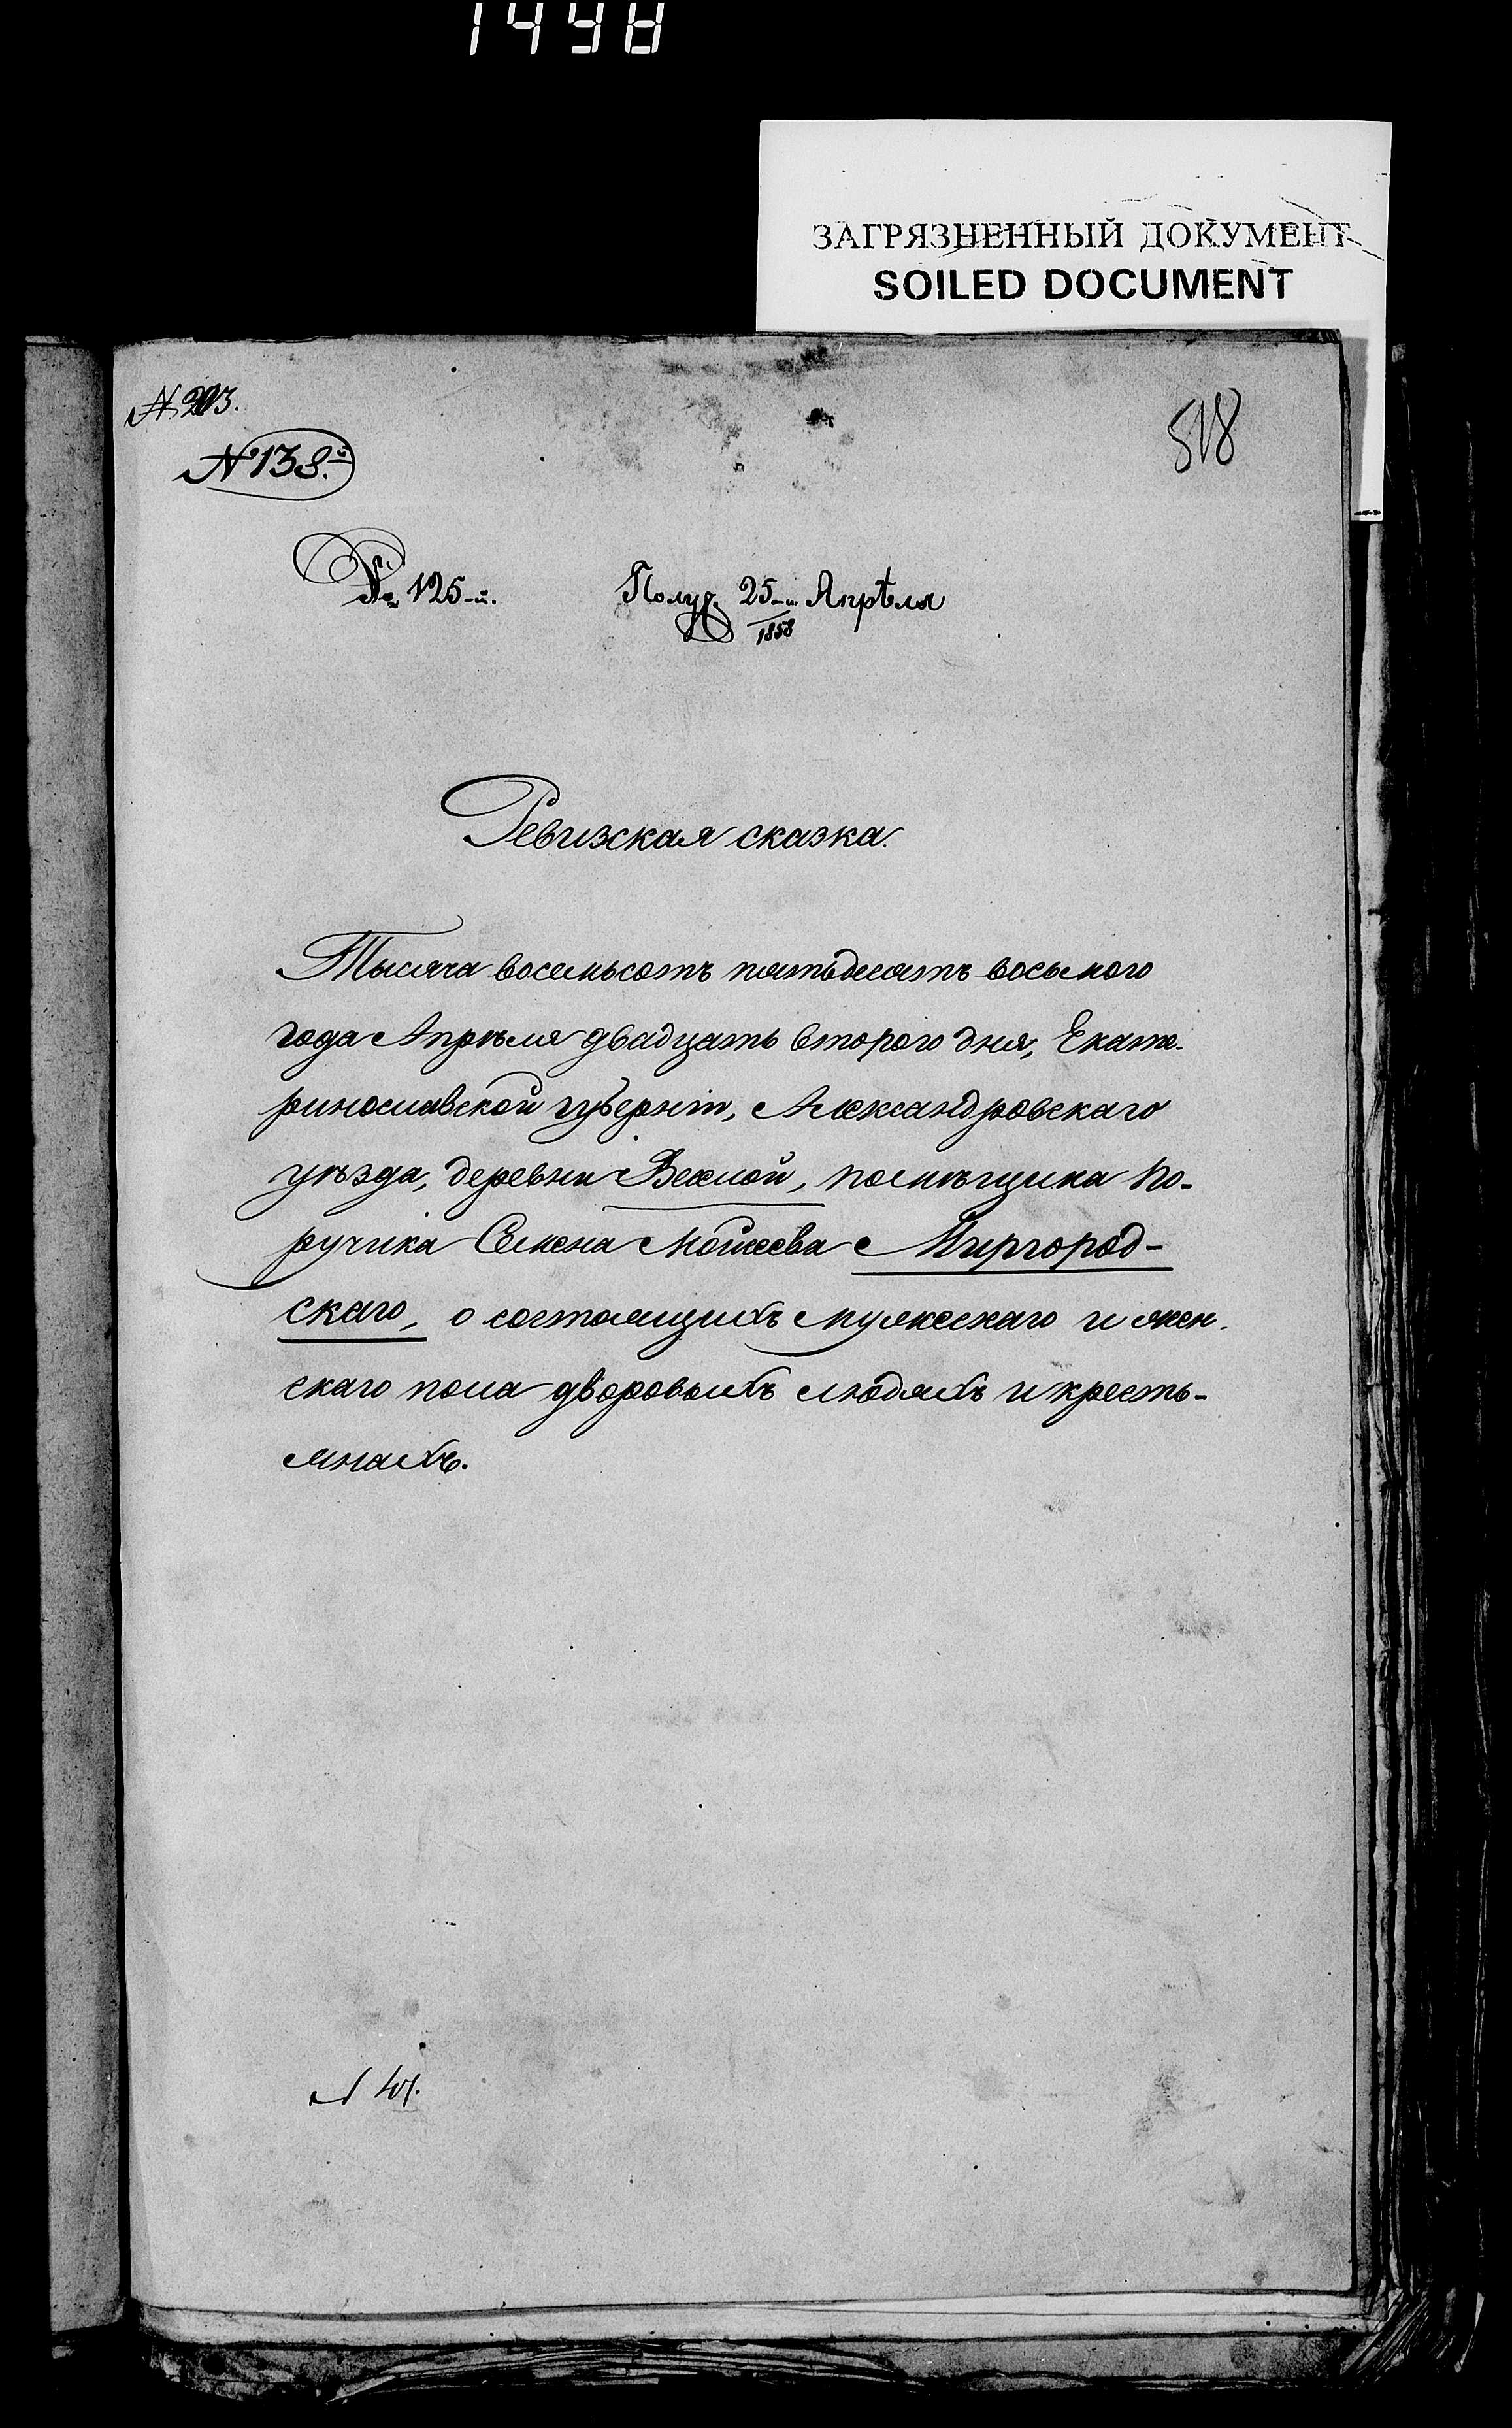 1498
ЗАГРЯЗНЕННЫЙ ДОКУМЕНТ
SOILED DOCUMENT
№ 203.
518
№ 138.й
№ 125-й. Получ. 25-го Апрѣля
1858
Ревизская сказка.
Тысяча восемьсотъ пятьдесятъ восьмого
года Апрѣля двадцать второго дня, Екате-
ринославской губерніи, Александровскаго
уѣзда, деревни Веселой, помѣщика по-
ручика Семена Моисеева Миргород-
скаго, о состоящихъ мужескаго и жен-
скаго пола дворовыхъ людяхъ и кресть-
янахъ.